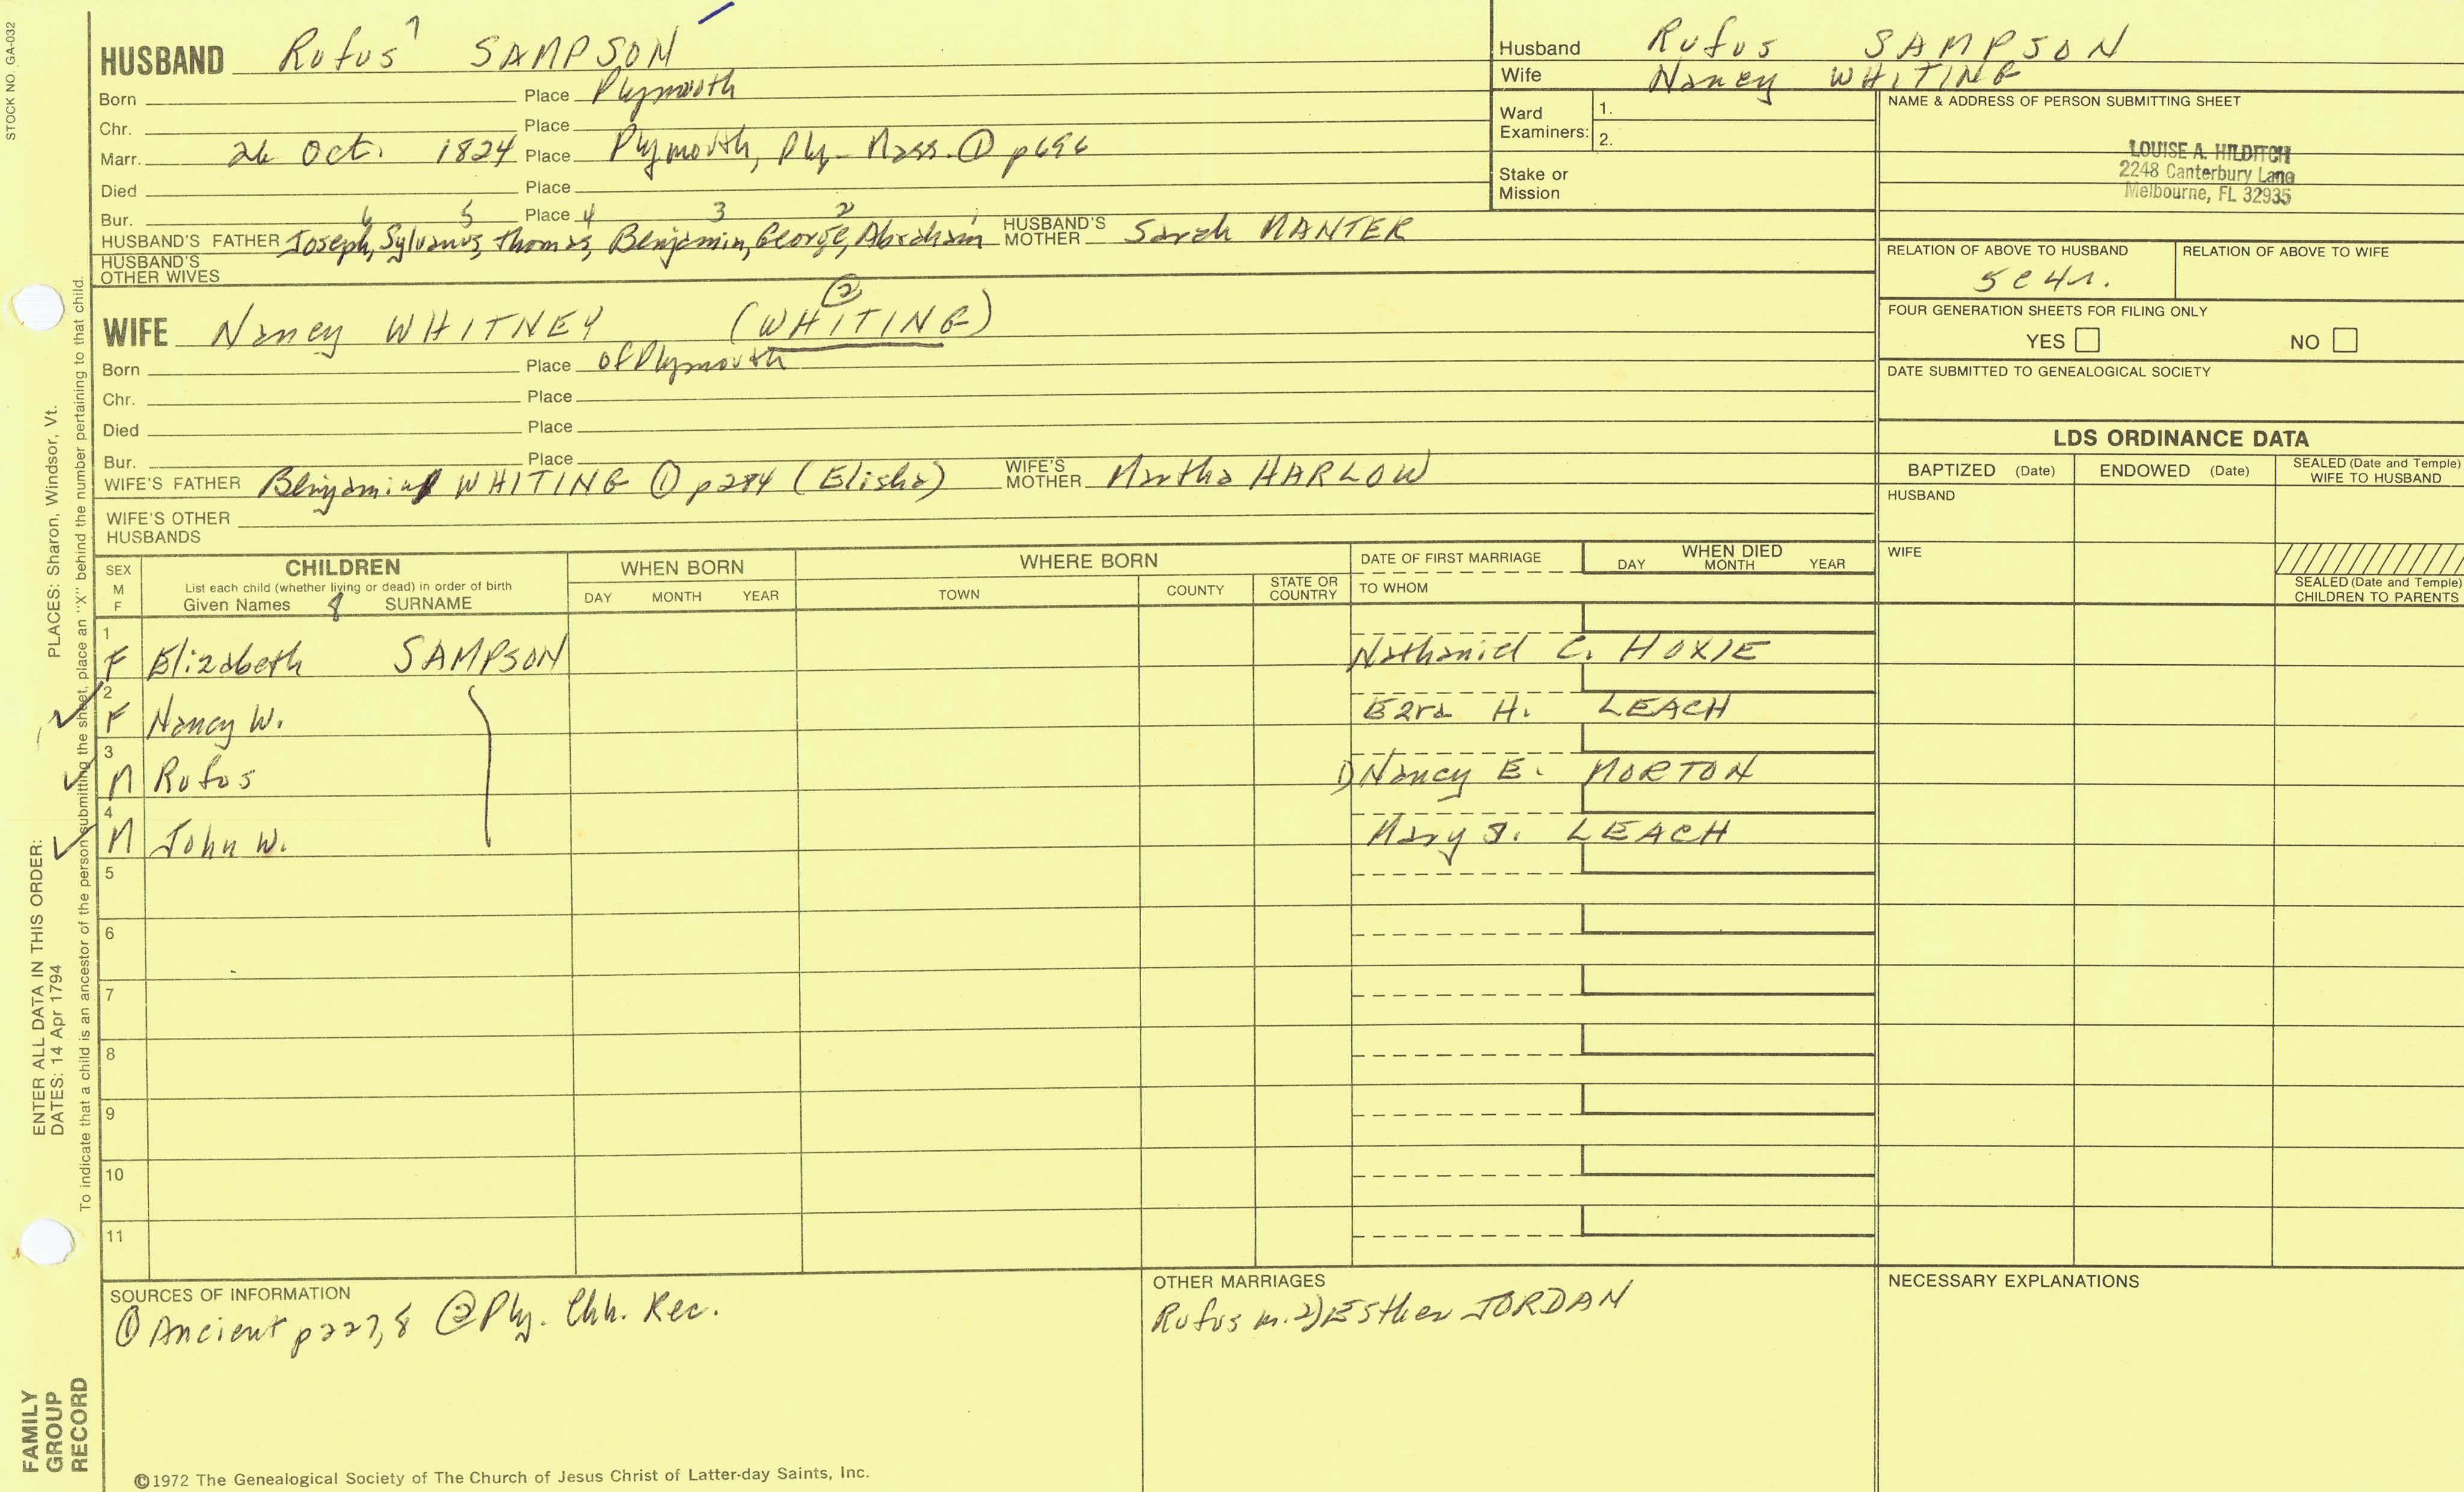 STOCK NO. GA-032
HUSBAND Rufus 7 SAMPSON
Born Place Plymouth
Chr. Place
Marr. 26 Oct. 1824 Place Plymouth, Ply - Mass. ① p696
Died Place
Bur. Place
6 5 4 3 2 1
HUSBAND'S FATHER Joseph, Sylvanus, Thomas, Benjamin, George, Abraham HUSBAND'S MOTHER Sarah MANTER
HUSBAND'S OTHER WIVES
②
WIFE Nancy WHITNEY (WHITING)
Born Place of Plymouth
Chr. Place
Died Place
Bur. Place
WIFE'S FATHER Benjamin WHITING ① p284 (Elisha) WIFE'S MOTHER Martha HARLOW
WIFE'S OTHER HUSBANDS
Husband Rufus SAMPSON
Wife Nancy WHITING
Ward Examiners: 1.
2.
Stake or Mission
NAME & ADDRESS OF PERSON SUBMITTING SHEET
LOUISE A. HILDITCH
2248 Canterbury Lane
Melbourne, FL 32935
RELATION OF ABOVE TO HUSBAND RELATION OF ABOVE TO WIFE
5c4r.
FOUR GENERATION SHEETS FOR FILING ONLY
YES NO
DATE SUBMITTED TO GENEALOGICAL SOCIETY
LDS ORDINANCE DATA
BAPTIZED (Date) ENDOWED (Date) SEALED (Date and Temple) WIFE TO HUSBAND
HUSBAND
WIFE
SEALED (Date and Temple) CHILDREN TO PARENTS
SEX M F
CHILDREN
List each child (whether living or dead) in order of birth
Given Names 8 SURNAME
WHEN BORN
DAY MONTH YEAR
WHERE BORN
TOWN COUNTY STATE OR COUNTRY
DATE OF FIRST MARRIAGE
TO WHOM
WHEN DIED
DAY MONTH YEAR
1 F Elizabeth SAMPSON Nathaniel C. HOXIE
2 F Nancy W. Ezra H. LEACH
3 M Rufus 1) Nancy E. MORTON
4 M John W. Mary J. LEACH
5
6
7
8
9
10
11
SOURCES OF INFORMATION
① Ancient p227,8 ② Ply. Chh. Rec.
OTHER MARRIAGES
Rufus m. 2) Esther JORDAN
NECESSARY EXPLANATIONS
©1972 The Genealogical Society of The Church of Jesus Christ of Latter-day Saints, Inc.
FAMILY GROUP RECORD
ENTER ALL DATA IN THIS ORDER:
DATES: 14 Apr 1794 PLACES: Sharon, Windsor, Vt.
To indicate that a child is an ancestor of the person submitting the sheet, place an "X" behind the number pertaining to that child.